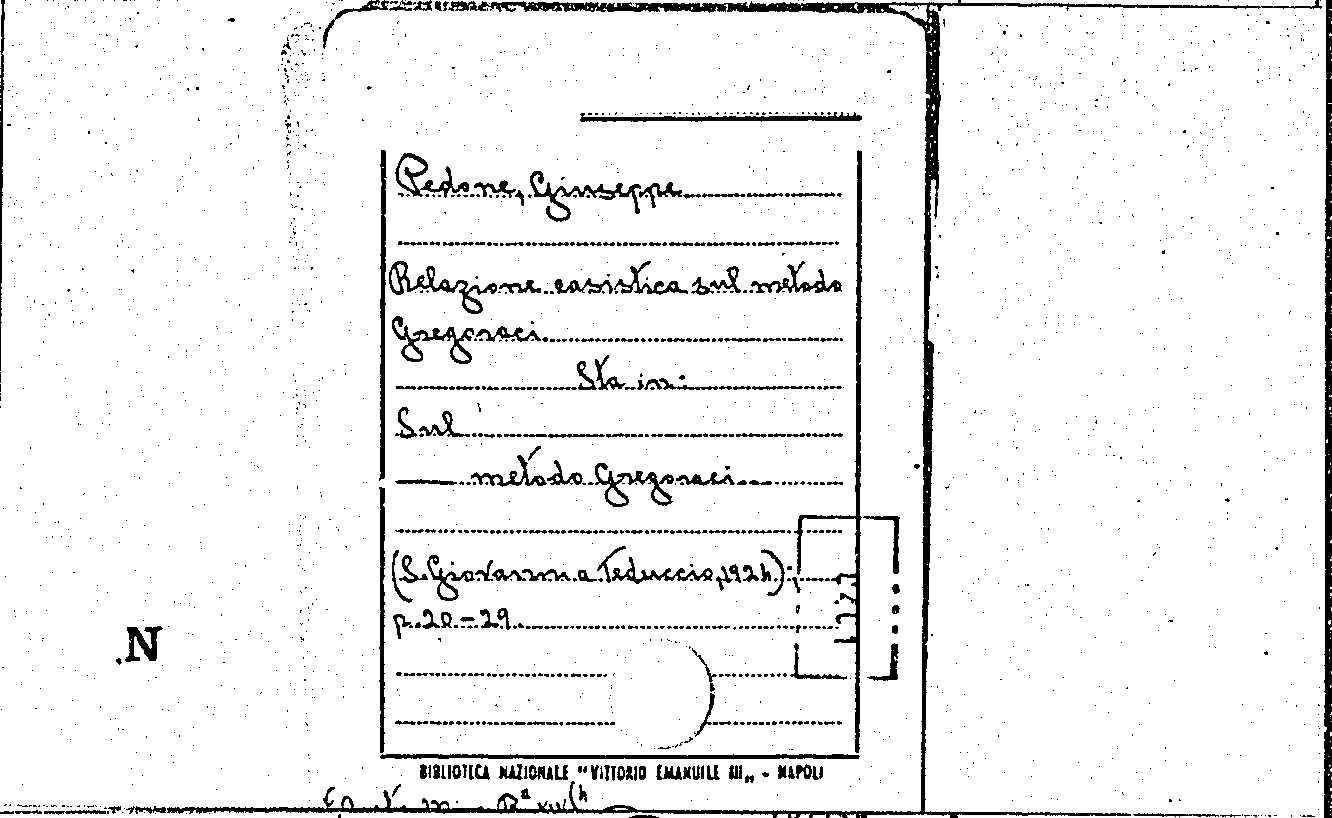 Pedone, Giuseppe
Relazione casistica sul metodo
Gregoraci.
Sta in:
Sul
metodo Gregoraci...
(S. Giovanni a Teduccio, 1924):
p. 20-29.
.N
BIBLIOTECA NAZIONALE "VITTORIO EMANUELE III" - NAPOLI